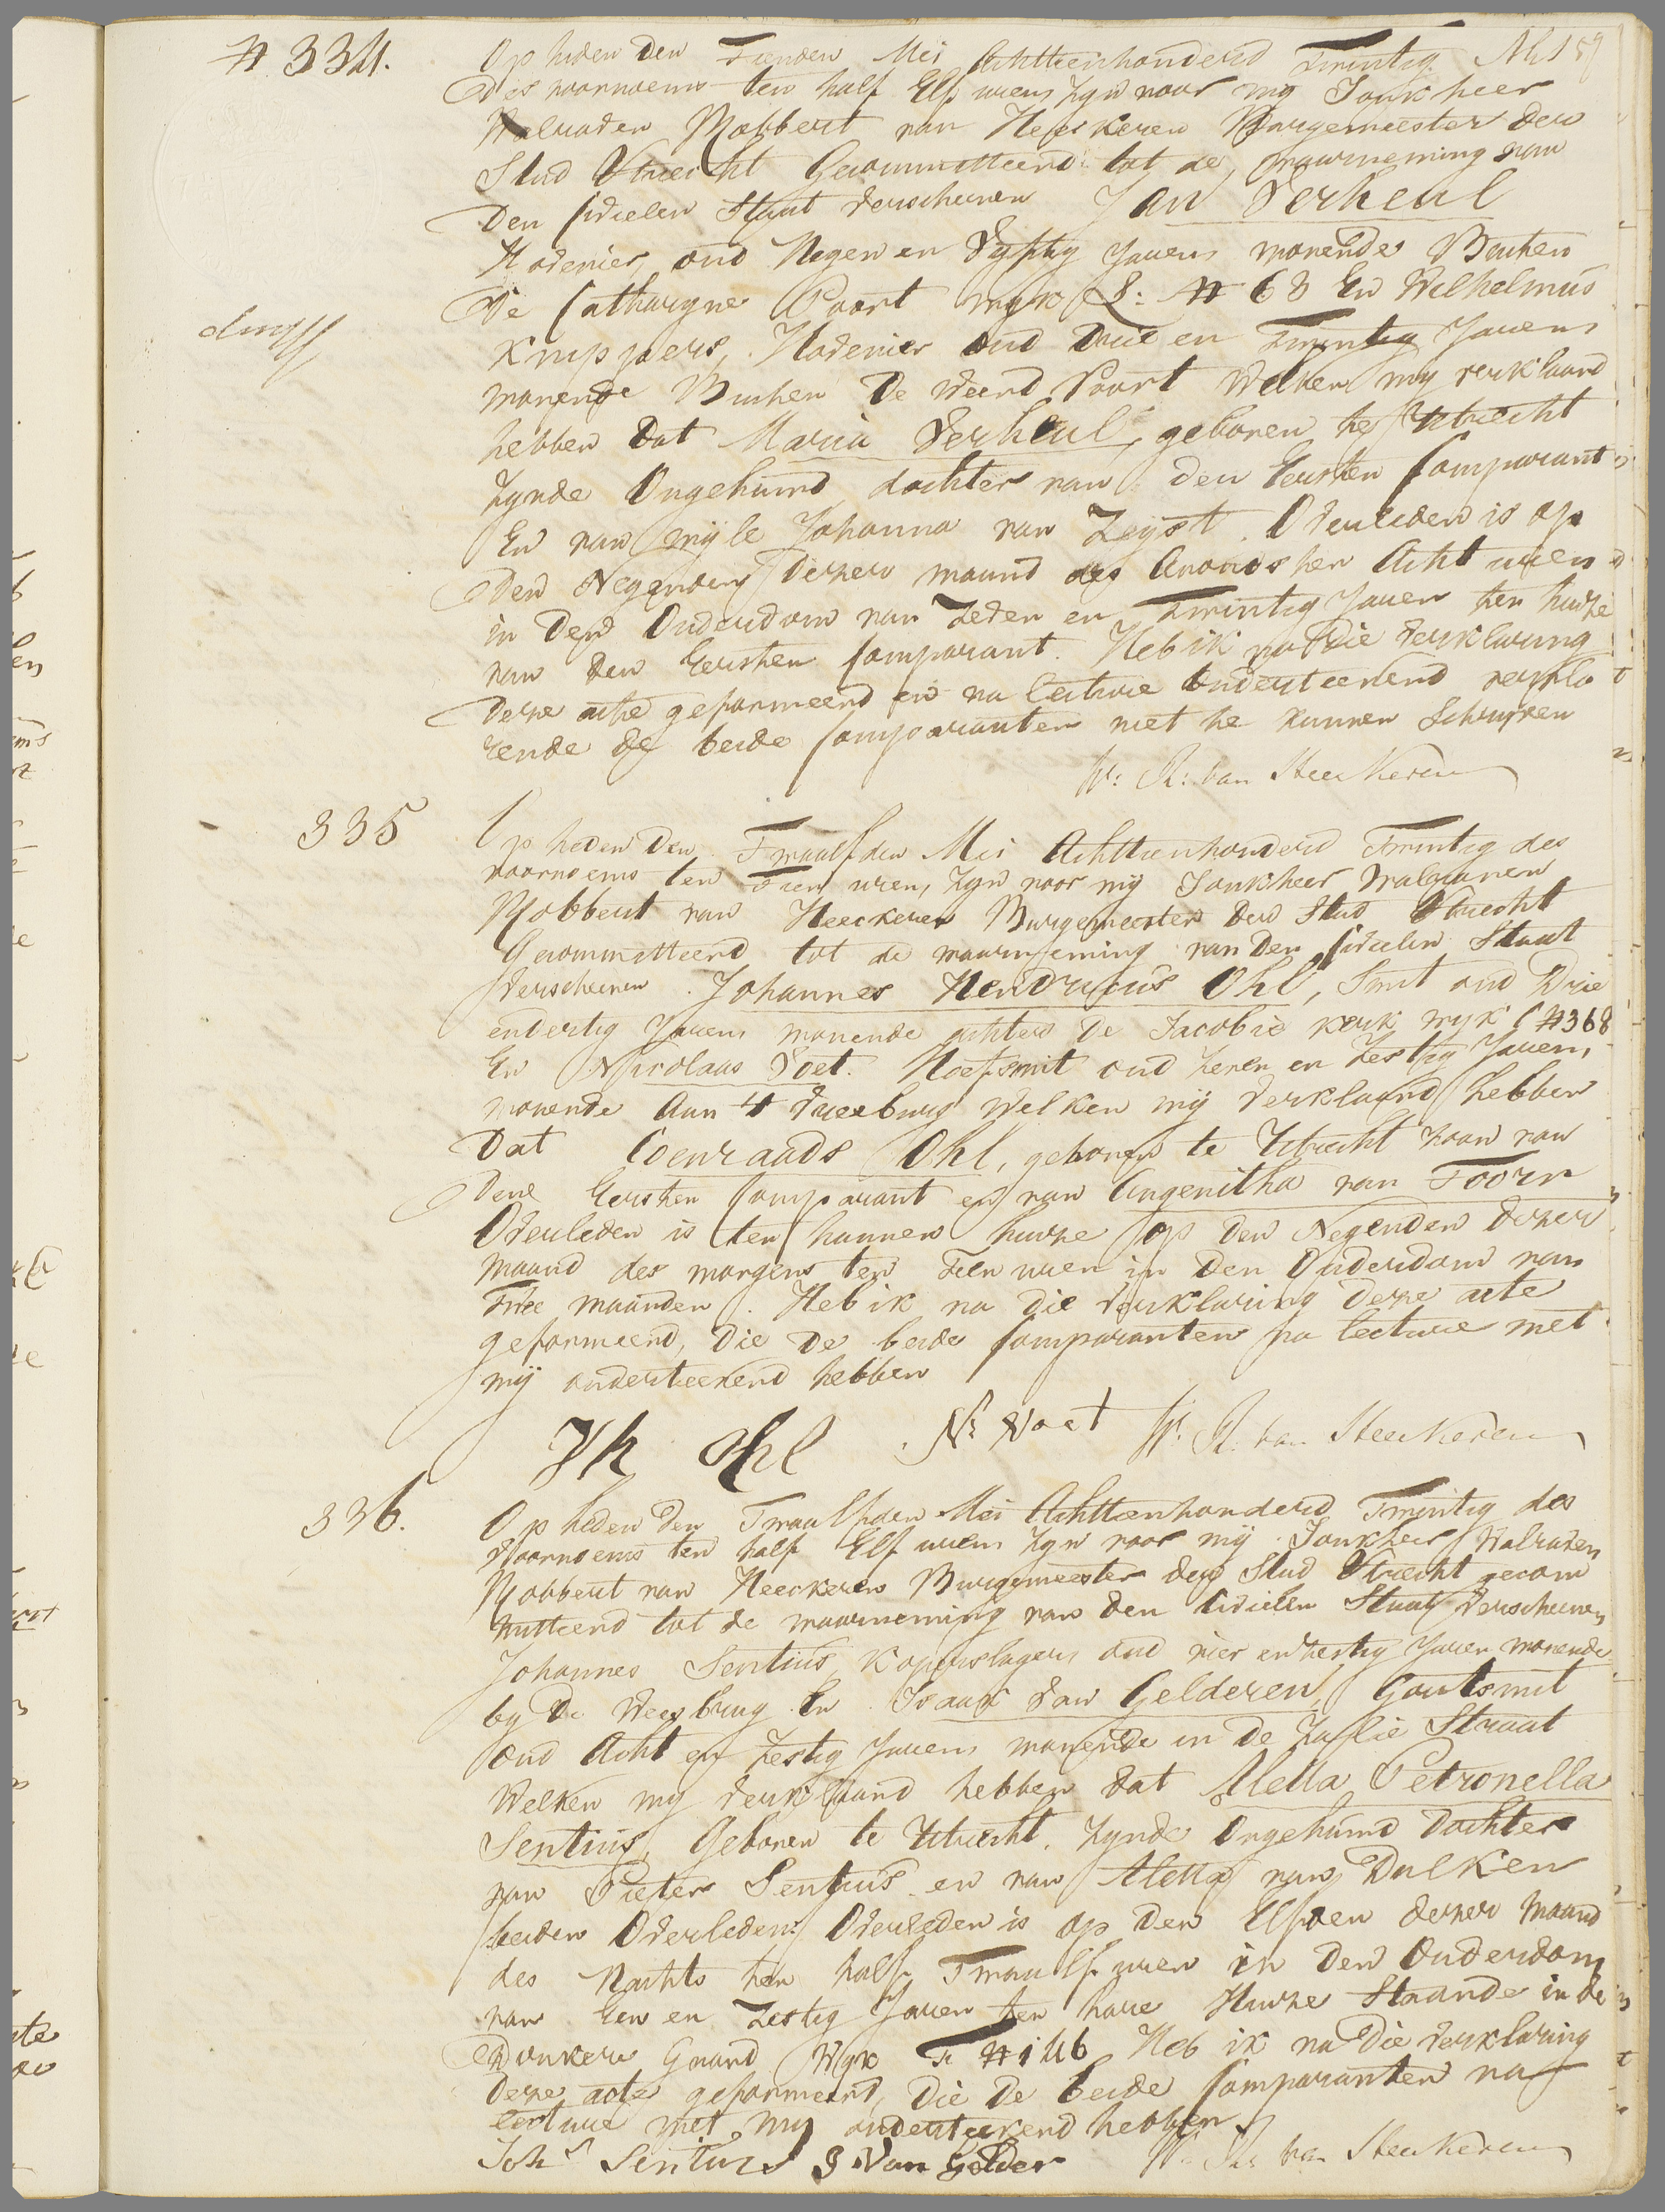 N 334.
Op heden den Tienden Mei Achttienhonderd Twintig
des voornoems ten half Elf uren zyn voor my Jonkheer
Walraven Robbert van Heeckeren Burgemeester der
Stad Utrecht Gecommitteerd tot de waarneming van
den Civielen Staat Verschenen Jan Verheul
Hovenier, oud Negen en Vyftig Jaren wonende Buiten
de Catharyne Poort wyk L: N 68 En Wilhelmus
Knippers, Hovenier oud Drie en Twintig Jaren
wonende Buiten De Weerd Poort Welken my verklaard
hebben dat Maria Verheul, geboren te Utrecht
zynde Ongehuwd dochter van den Eersten Comparant
En van wyle Johanna van Zeyst. Overleden is op
den Negenden dezer maand des Avonds ten Acht uren
in den Ouderdom van Zeven en Twintig Jaren ten huize
van den Eersten Comparant. Heb ik na die Verklaring
deze acte geformeerd en na lecture Onderteekend verkla
rende de beide Comparanten niet te kunnen Schryven
W: R: van Heeckeren
335
Op heden den Twaalfden Mei Achttienhonderd Twintig des
voornoems ten Tien uren, zyn voor mij Jonkheer Walraven
Robbert van Heeckeren Burgemeester der Stad Utrecht
Gecommitteerd tot de waarneming van den Civielen Staat
Verschenen Johannes Hendricus Ohl, Smit oud Drie
endertig Jaren wonende achter De Jacobie kerk wyk C N 368
En Nicolaas Voet. Hoefsmit oud zeven en zestig Jaren,
wonende Aan 't Vreeburg Welken mij Verklaard hebben
Dat Coenraads Ohl, geboren te Utrecht zoon van
Dene Eersten Comparant en van Angenitha van Toorn
Overleden is ten hunnen huize op den Negenden dezer
maand des morgens ten Tien uren in den Ouderdom van
Twee maanden. Heb ik na die verklaring deze acte
geformeerd, Die de beide Comparanten na lecture met
mij onderteekend hebben
JH Ohl N: Voet W. R. van Heeckeren
336.
Op heden den Twaalfden Mei Achttienhonderd Twintig des
Voornoems ten half Elf uren zyn voor mij Jonkheer Walraven
Robbert van Heeckeren Burgemeester der Stad Utrecht gecom
mitteerd tot de waarneming van den Civielen Staat Verschenen
Johannes Sentius, Koperslager, oud vier en zestig Jaren wonende
by De Weesbrug En Isaak van Gelderen, Goutsmit
oud Acht en zestig Jaren wonende in de Zalie Straat
Welken my verklaard hebben dat Aletta Petronella
Sentius, Geboren te Utrecht, zynde Ongehuwd Dochter
van Pieter Sentius en van Aletta van Dalken
beiden Overleden. Overleden is op den Elfden dezer Maand
des Nachts ten half Twaalf uren in den Ouderdom
van Een en Zestig Jaren ten hare Huize Staande in de
Donkere Gaard Wyk N 146 Heb ik na Die verklaring
deze acte geformeerd, Die de beide Comparanten na
lecture met my onderteekend hebben
Joh.s Sentius I Van Gelder W. R. van Heeckeren